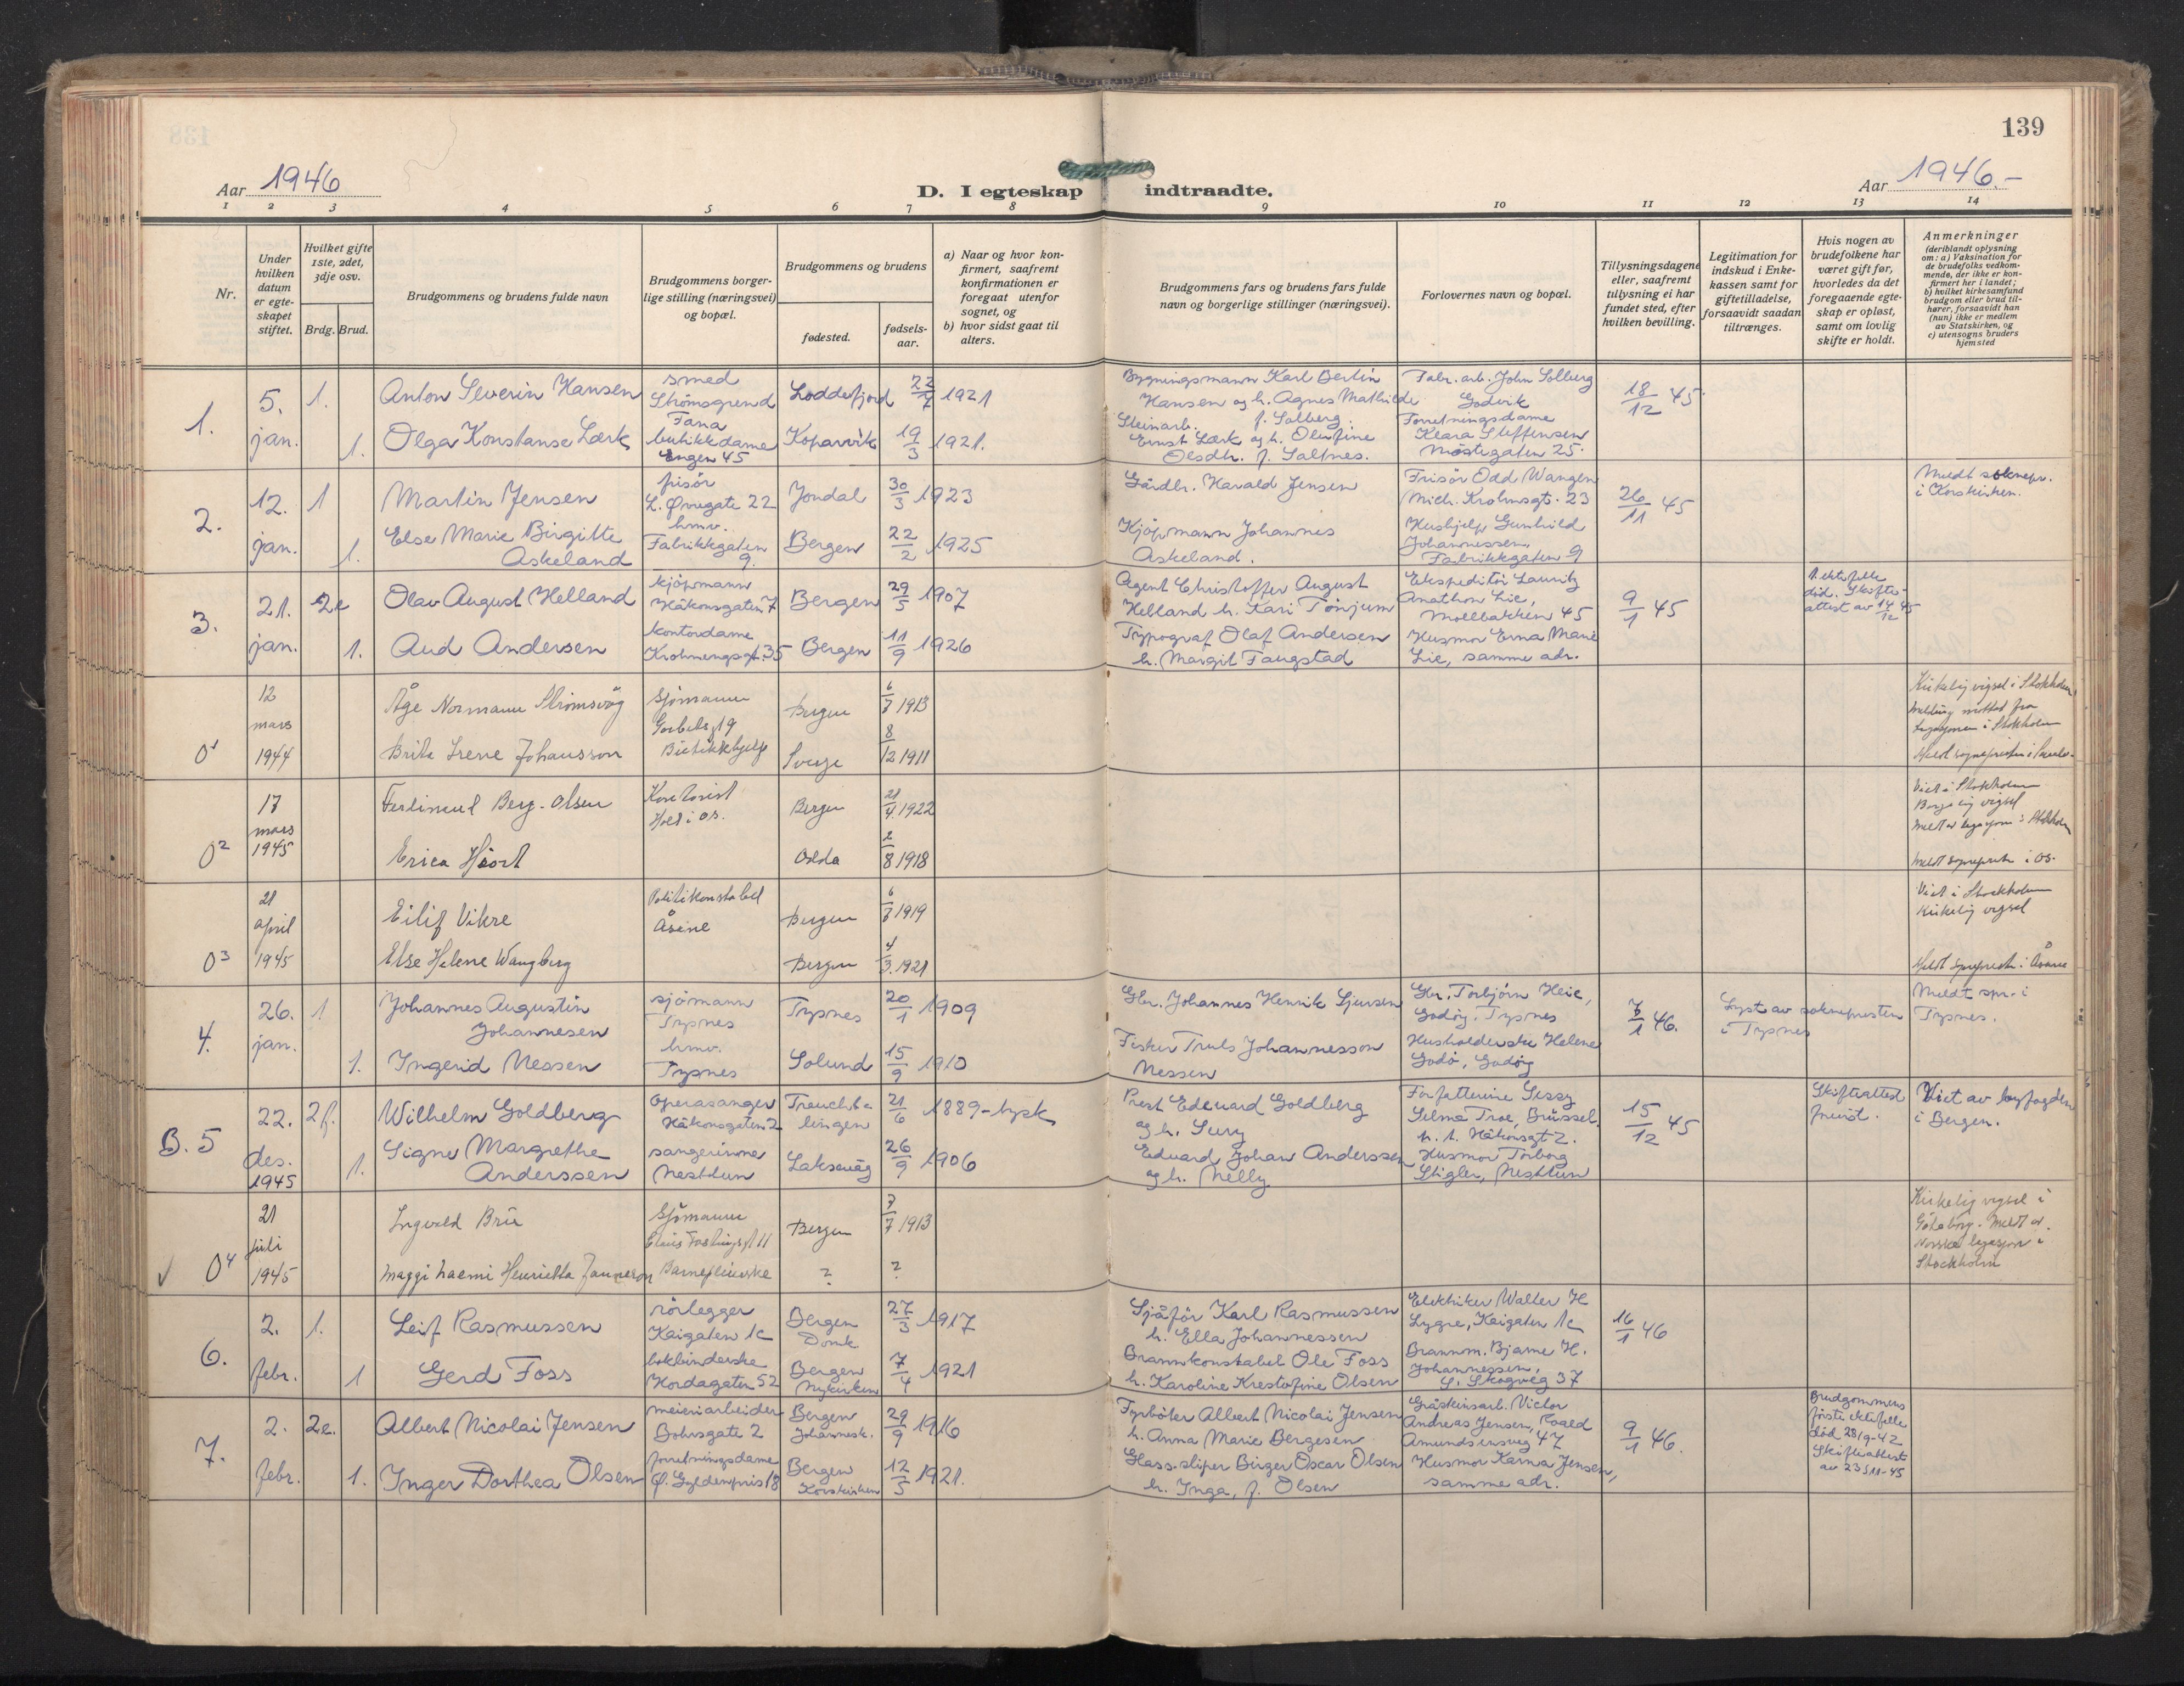 139
Aar 1946
D. I egteskap indtraadte.
Aar 1946.-
1 2 3 4 5 6 7 8 9 10 11 12 13 14
Nr.
Under
hvilken
datum
er egte-
skapet
stiftet.
Hvilket gifte
1ste, 2det,
3dje osv.
Brdg. Brud.
Brudgommens og brudens fulde navn
Brudgommens borger-
lige stilling (næringsvei)
og bopæl.
Brudgommens og brudens
fødested.
fødsels-
aar.
a) Naar og hvor kon-
firmert, saafremt
konfirmationen er
foregaat utenfor
sognet, og
b) hvor sidst gaat til
alters.
Brudgommens fars og brudens fars fulde
navn og borgerlige stillinger (næringsvei).
Forlovernes navn og bopæl.
Tillysningsdagene
eller, saafremt
tillysning ei har
fundet sted, efter
hvilken bevilling.
Legitimation for
indskud i Enke-
kassen samt for
giftetilladelse,
forsaavidt saadan
tiltrænges.
Hvis nogen av
brudefolkene har
været gift før,
hvorledes da det
foregaaende egte-
skap er opløst,
samt om lovlig
skifte er holdt.
Anmerkninger
(deriblandt oplysning
om: a) Vaksination for
de brudefolks vedkom-
mende, der ikke er kon-
firmert her i landet;
b) hvilket kirkesamfund
brudgom eller brud til-
hører, forsaavidt han
(hun) ikke er medlem
av Statskirken, og
c) utensogns bruders
hjemsted
1.
5.
jan.
1.
1.
Anton Severin Hansen
Olga Konstanse Lærk
smed
Strømsgrend
Fana
butikkdame
Engen 45
Loddefjord 22/7 1921
Koparvik 19/3 1921.
Bygningsmann Karl Bertin
Hansen og h. Agnes Mathilde
f. Solberg.
Steinarb.
Ernst Lærk og h. Olufine
Olsdtr. f. Saltnes.
Fabr. arb. John Solberg
Godvik
Forretningsdame
Klara Steffensen
Møstegaten 25.
18/12 45.
2.
12.
jan.
1
1.
Martin Jensen
Else Marie Birgitte
Askeland
frisør
L. Øvregate 22
hmv.
Fabrikkgaten
9.
Jondal 30/3 1923
Bergen 22/2 1925
Gårdbr. Harald Jensen
Kjøpmann Johannes
Askeland.
Frisør Odd Wangen
Mich. Krohnsgt. 23
Hushjelp Gunhild
Johannessen,
Fabrikkgaten 9
26/11 45
Meldt soknepr.
i Korskirken.
3.
21.
jan.
2e
1.
Olav August Helland
Aud Andersen
kjøpmann
Håkonsgaten 7
kontordame
Krohnengsgt. 35
Bergen 29/5 1907
Bergen 11/9 1926
Agent Christoffer August
Helland h. Kari Tønjum
Typograf Olaf Andersen
h. Margit Faugstad
Ekspeditør Lauritz
Anathon Lie,
Møllbakken 45
Husmor Erna Marie
Lie, samme adr.
9/1 45
1. ektefelle
død. Skifte-
attest av 14/12 45
01
12
mars
1944
Åge Normann Strømsvåg
Brita Irene Johansson
Sjømann
Bergen 6/7 1913
Sverge 8/12 1911
Kirkelig vigsel i Stokholm,
melding mottat fra
legasjonen i Stokholm
02
17
mars
1945
Berg-Olsen
Erica Hjort
Bergen 21/4 1922
Odda 2/8 1918
Viet i Stokholm
Borgelig vigsel
meldt av legasjonen i Stokholm
meldt sogneprest i Os.
03
21
april
1945
Eilif Vikre
Else Helene Wangberg
Politikonstabel
Åsane
Bergen 6/3 1919
Bergen 4/3. 1921
Viet i Stockholm
Kirkelig vigsel
Meldt sogneprest i Åsane
4.
26.
jan.
1.
1.
Johannes Augustin
Johannesen
Ingerid Nessen
sjømann
Tysnes
hmv.
Tysnes
Tysnes 20/1 1909
Solund 15/9 1910
Gbr. Johannes Henrik Sjursen
Fisker Truls Johannesson
Nessen
Gbr. Torbjørn Heie,
Godøy, Tysnes
Husholderske Helene
Godø, Godøy
7/1 46.
Lyst av soknepresten
i Tysnes
Meldt spr. i
Tysnes.
B. 5
22.
des.
1945
2f.
1.
Wilhelm Goldberg
Signe Margrethe
Anderssen
operasanger
Håkonsgaten 2
sangerinne
Nesttun
Treucht-
lingen 21/6 1889 - tysk
Laksevåg 26/9 1906
Prest Eduard Goldberg
og h. Sury
Eduard Johan Anderssen
og h. Nelly
Forfatterine Sissy
Selma Troe, Brüssel,
h. t. Håkonsgt 2.
Husmor Torborg
Stigler, Nesttun
15/12 45
Skifteattest
fremvist.
Viet av byfogden
i Bergen.
✓ 04
21
juli
1945
Ingvald Brie
Maggi Naemi Henrietta
Sjømann
Claus Fastingsgt 11
Barnepleierske
Bergen 7/7 1913
? ?
Kirkelig vigsel i
Göteborg. Meldt av
Norske legasjon i
Stockholm
6.
2.
febr.
1.
1
Leif Rasmussen
Gerd Foss
rørlegger
Kaigaten 1c
bokbinderske
Hordagaten 52
Bergen
Domk. 27/3 1917
Bergen
Nykirken 7/4 1921
Sjåfør Karl Rasmussen
h. Ella Johannessen
Brannkonstabel Ole Foss
h. Karoline Krestofine Olsen
Elektriker Walter H
Lygre, Kaigaten 1c
Brannm. Bjarne H.
Johannessen,
S. Skogveg 37
16/1 46
7.
2.
febr.
2e.
1.
Albert Nicolai Jensen
Inger Dorthea Olsen
meieriarbeider
Bohrsgate 2
forretningsdame
Ø. Gyldenpris 18
Bergen
Johannesk. 29/9 1916
Bergen
Korskirken 12/5 1921.
Fyrbøter Albert Nicolai Jensen
h. Anna Marie Bergesen
Glass-sliper Birger Oscar Olsen
h. Inga, f. Olsen
Gråsteinsarb. Victor
Andreas Jensen, Roald
Amundsensveg 47
Husmor Karna Jensen,
samme adr.
9/1 46.
Brudgommens
første ektefelle
død 28/9-42
Skifteattest
av 23/11-45